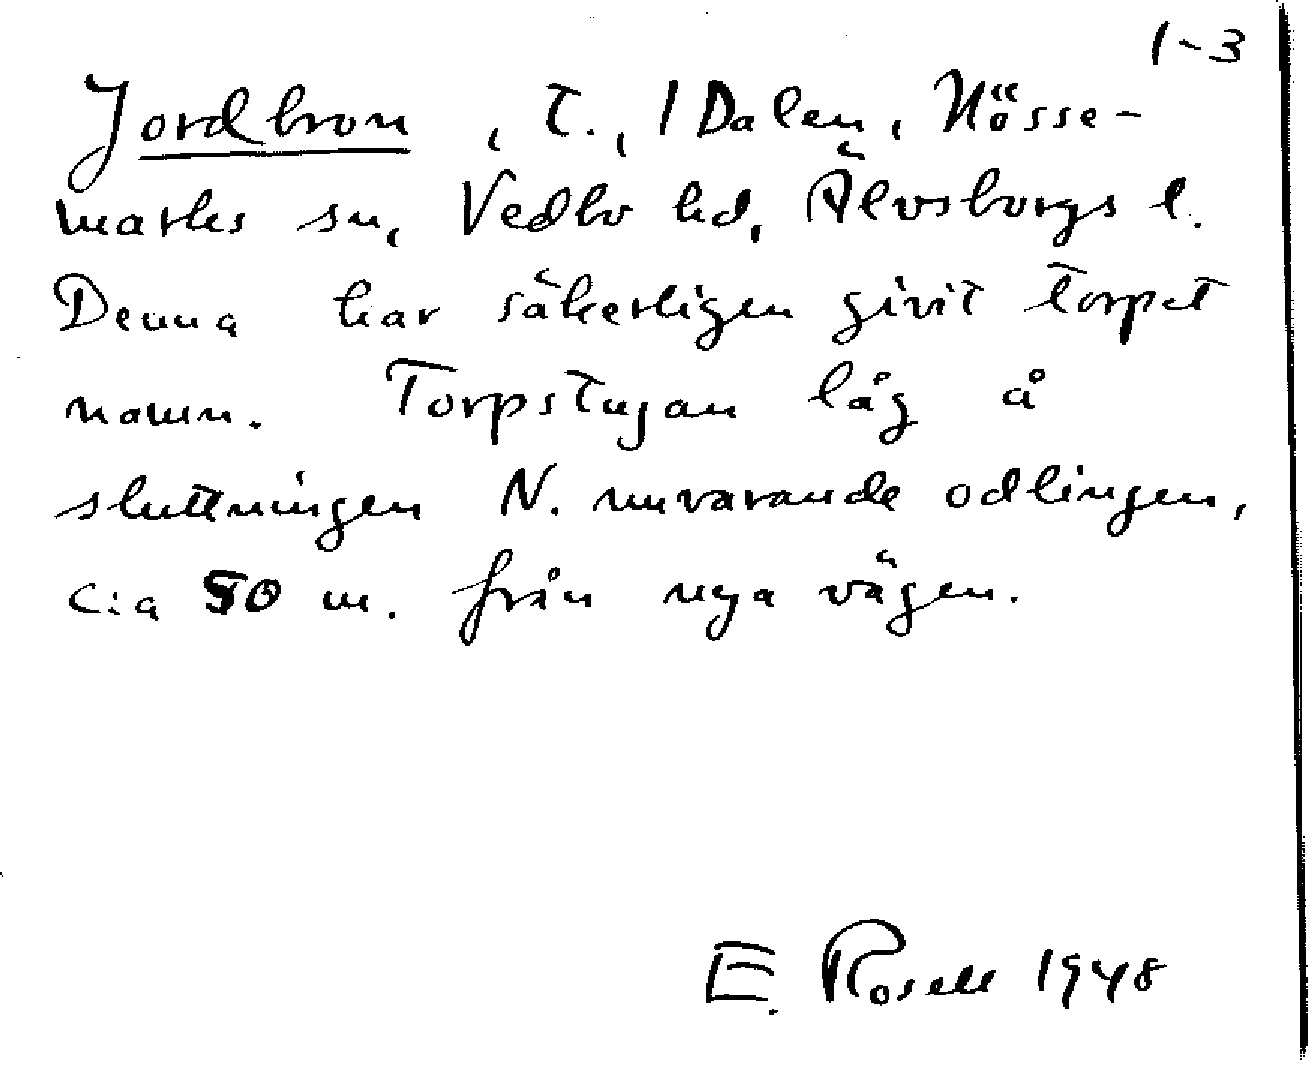 1-3
Jordbron, t., 1 Dalen, Nösse-
marks sn, Vedbo hd, Älvsborgs l.
Denna har säkerligen givit torpet
namn. Torpstugan låg å
sluttningen N. nuvarande odlingen,
c:a 50 m. från nya vägen.
E. Rosell 1948